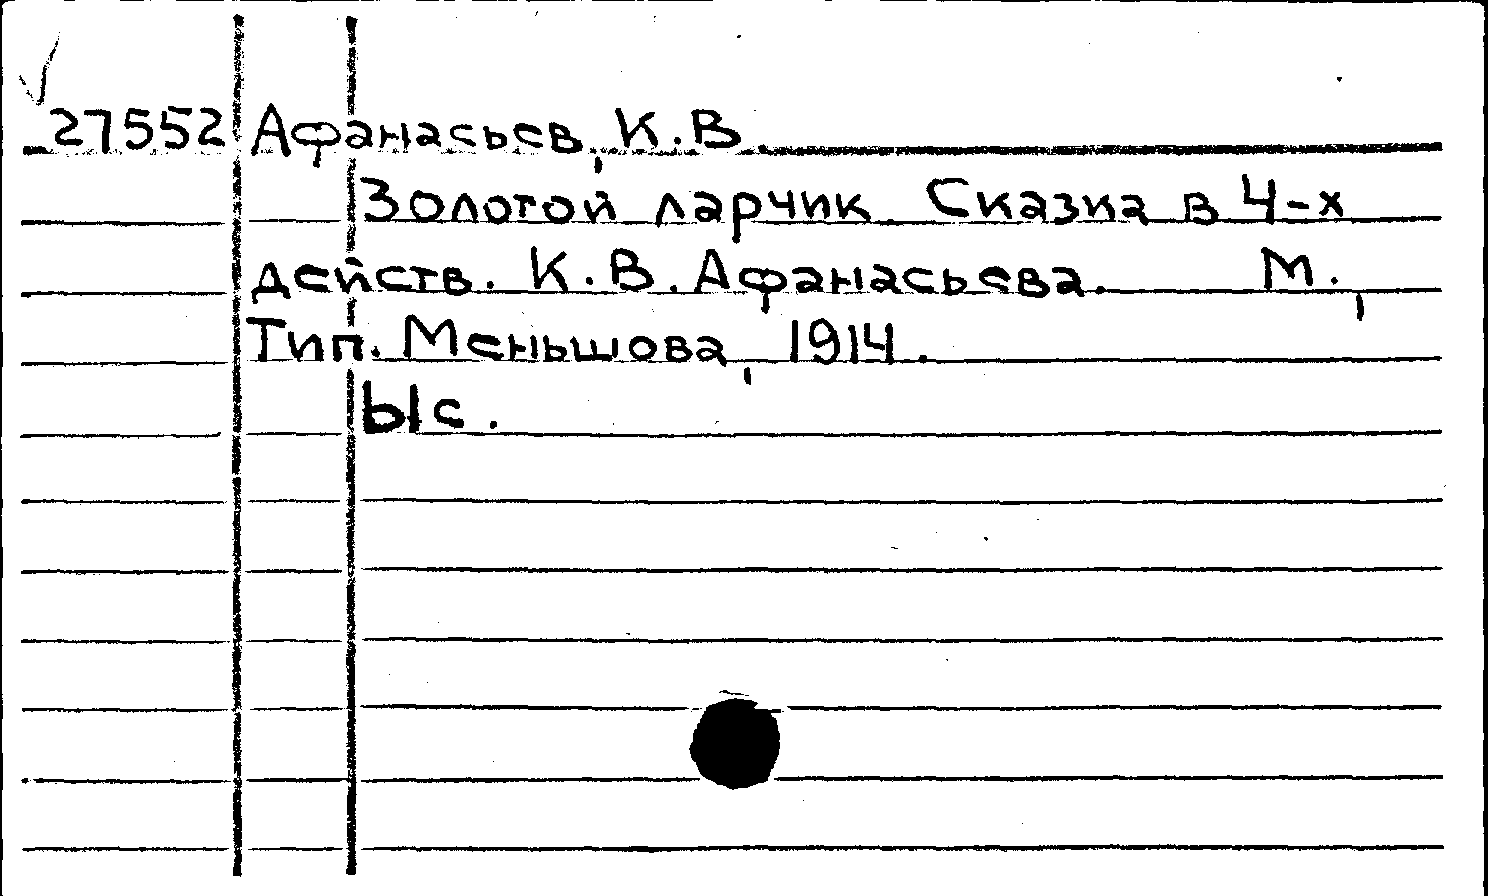 27552 Афанасьев, К.В.
Золотой ларчик. Сказка в 4-х
действ. К.В. Афанасьева. М.,
Тип. Меньшова, 1914.
Ыс.